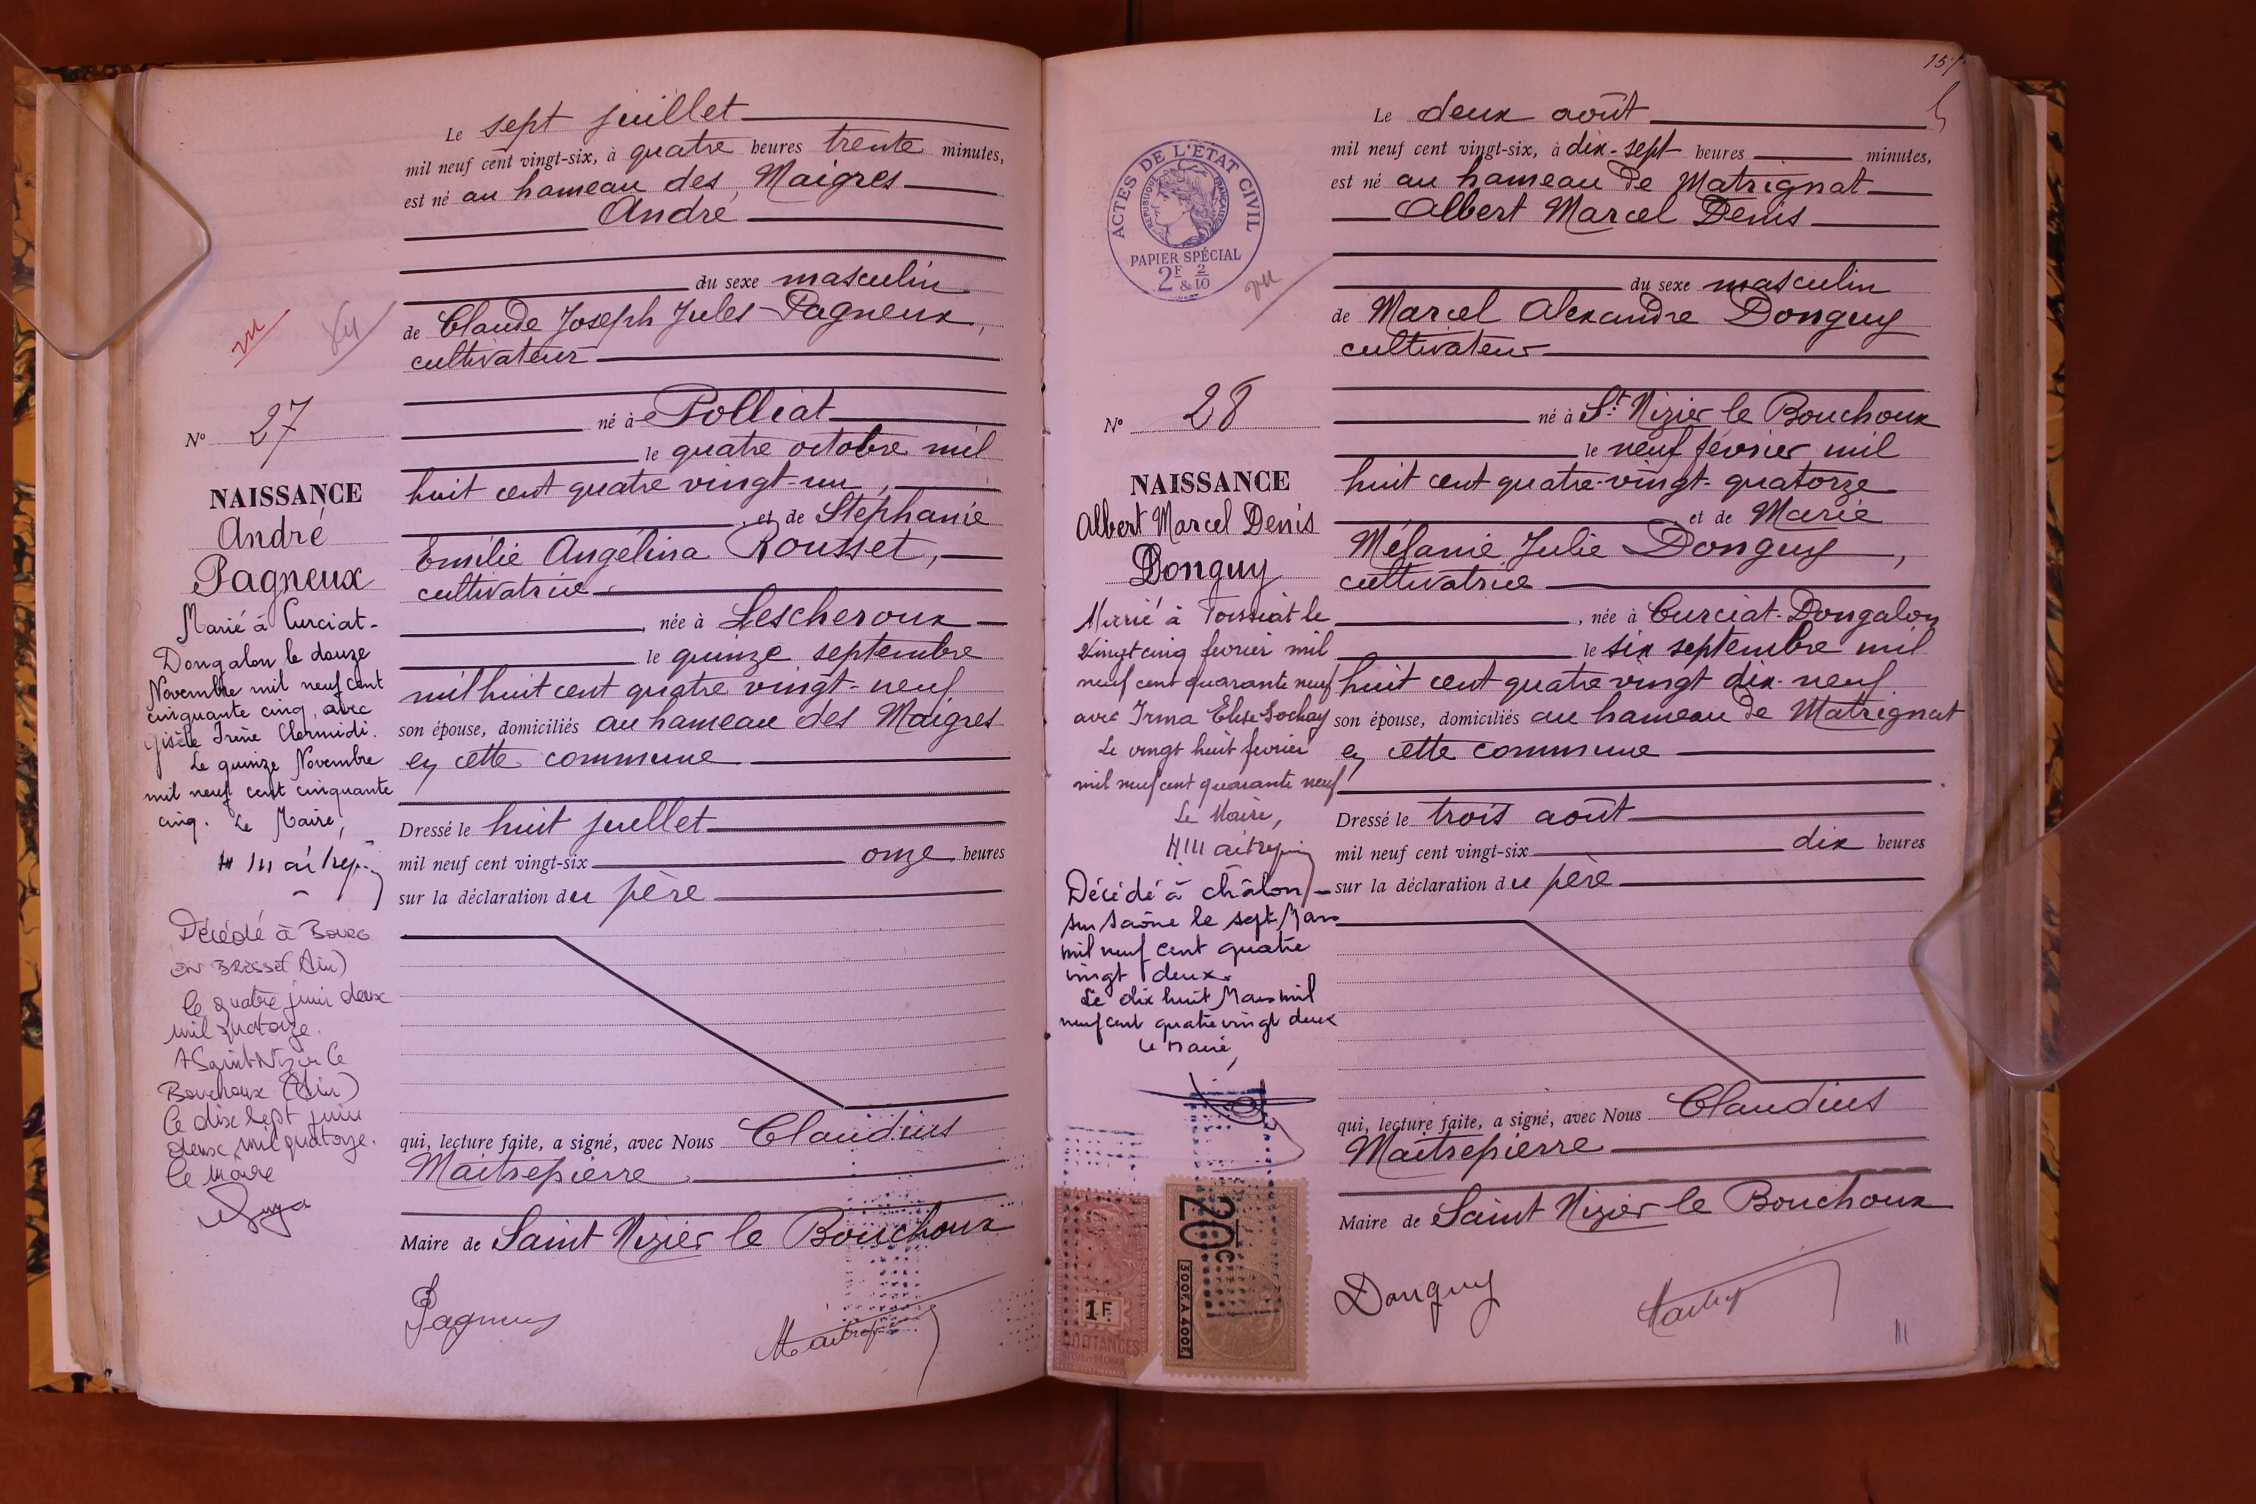 Le sept juillet
mil neuf cent vingt-six, à quatre heures trente minutes,
est né au hameau des Maigres
André
du sexe masculin
de Claude Joseph Jules Pagneux,
cultivateur
né à Polliat
le quatre octobre mil
huit cent quatre vingt-un,
et de Stéphanie
Emilie Angélina Rousset,
cultivatrice
née à Lescheroux
le quinze septembre
mil huit cent quatre vingt-neuf
son épouse, domiciliés au hameau des Maigres
en cette commune
Dressé le huit juillet
mil neuf cent vingt-six onze heures
sur la déclaration du père
qui, lecture faite, a signé, avec Nous Claudius
Maitrepierre
Maire de Saint Nizier le Bouchoux
Pagneux
vu
N° 27
NAISSANCE
André
Pagneux
Marié à Curciat-
Dongalon le douze
Novembre mil neuf cent
cinquante cinq, avec
Gisèle Irène Clermidi.
Le quinze Novembre
mil neuf cent cinquante
cinq. Le Maire,
Décédé à Bourg
en Bresse (Ain)
le quatre juin deux
mil quatorze.
A Saint Nizier le
Bouchoux (Ain)
le dix sept juin
deux mil quatorze.
le Maire
157
Le deux août
mil neuf cent vingt-six, à dix-sept heures minutes,
est né au hameau de Matrignat
Albert Marcel Denis
du sexe masculin
de Marcel Alexandre Donguy
cultivateur
né à St Nizier le Bouchoux
le neuf février mil
huit cent quatre-vingt-quatorze
et de Marie
Mélanie Julie Donguy,
cultivatrice
, née à Curciat-Dongalon
le six septembre mil
huit cent quatre vingt dix-neuf
son épouse, domiciliés au hameau de Matrignat
en cette commune
Dressé le trois août
mil neuf cent vingt-six dix heures
sur la déclaration du père
qui, lecture faite, a signé, avec Nous Claudius
Maitrepierre
Maire de Saint Nizier le Bouchoux
Donguy
ACTES DE L'ÉTAT CIVIL
RÉPUBLIQUE FRANÇAISE
PAPIER SPÉCIAL
2F & 2/10
vu
N° 28
NAISSANCE
Albert Marcel Denis
Donguy
Marié à Foissiat le
vingt cinq février mil
neuf cent quarante neuf
avec Irma Elise Sochay
Le vingt huit février
mil neuf cent quarante neuf
Le Maire,
Décédé à Châlon
sur Saône le sept Mars
mil neuf cent quatre
vingt deux.
Le dix huit Mars mil
neuf cent quatre vingt deux
Le Maire,
1F.
20c
300F A 400F